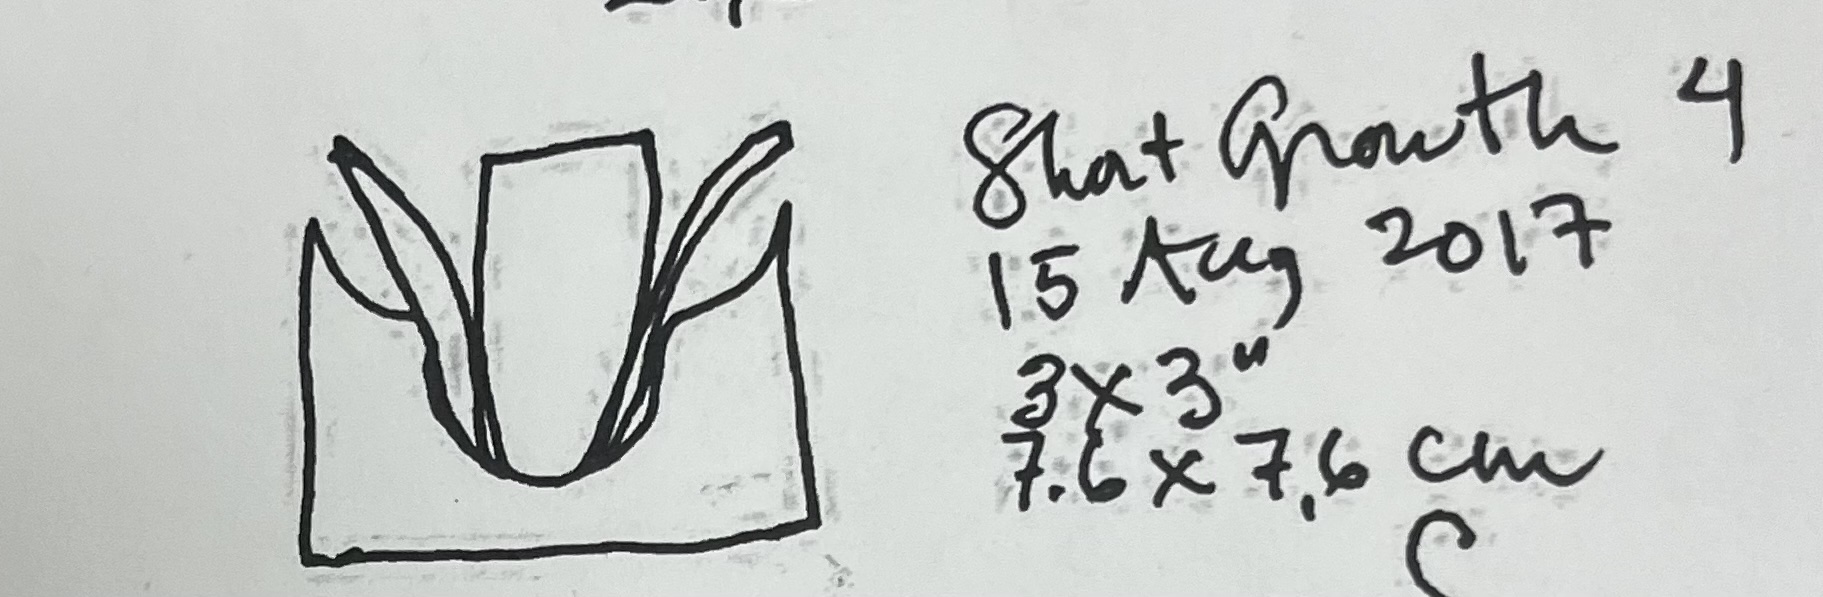 Short Growth 4
15 Aug 2017
3 x 3"
7.6 x 7.6 cm